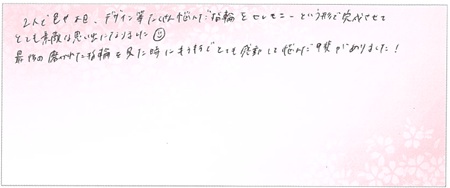 2人で色や石、デザイン等たくさん悩んだ指輪をセレモニーという形で完成させて
とても素敵な思い出になりました
最後の磨かれた指輪を見た時にキラキラでとても感動して悩んだ甲斐がありました!